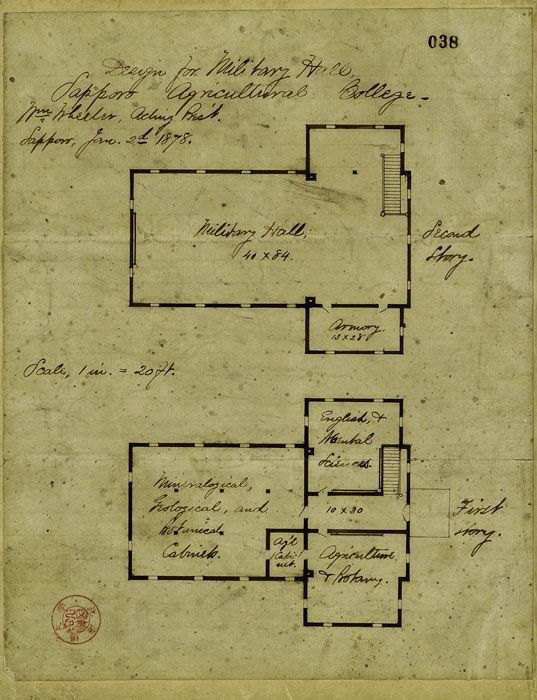 038
Design for Military Hall,
Sapporo Agricultural College.
Wm Wheeler, Acting Prest.
Sapporo, Jan. 2d 1878.
Military Hall,
40 x 84.
Second
Story.
Armory.
13 x 28
Scale, 1 in. = 20 ft.
English, &
Mental
Sciences.
Mineralogical,
Geological, and
Botanical
Cabinets.
10 x 30
First
Story.
Ag'l
Cabi-
net.
Agriculture
& Botany.